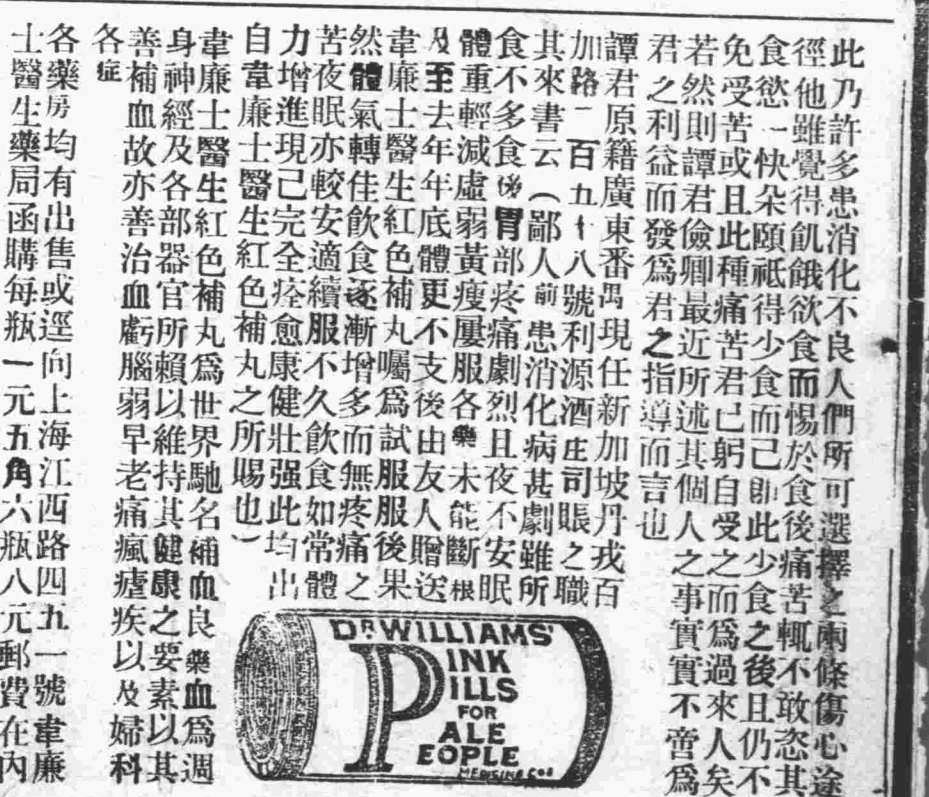 此乃許多患消化不良人們所可選擇之兩條傷心途
徑他雖覺得飢餓欲食而惕於食後痛苦輒不敢恣其
食慾一快朵頤祇得少食而己即此少食之後且仍不
免受苦或且此種痛苦君已躬自受之而爲過來人矣
若然則譚君儉卿最近所述其個人之事實實不啻爲
君之利益而發爲君之指導而言也
譚君原籍廣東番禺現任新加坡丹戎百
加路二百五十八號利源酒庄司賬之職
其來書云(鄙人前患消化病甚劇雖所
食不多食後胃部疼痛劇烈且夜不安眠
體重輕減虛弱黃瘦屢服各藥未能斷根
及至去年年底體更不支後由友人贈送
韋廉士醫生紅色補丸囑爲試服服後果
然體氣轉佳飲食逐漸增多而無疼痛之
苦夜眠亦較安適續服不久飲食如常體
力增進現己完全痊愈康健壯强此均出
自韋廉士醫生紅色補丸之所賜也)
韋廉士醫生紅色補丸爲世界馳名補血良藥血爲週
身神經及各部器官所賴以維持其健康之要素以其
善補血故亦善治血虧腦弱早老痛瘋瘧疾以及婦科
各症
各藥房均有出售或逕向上海江西路四九一號韋廉
士醫生藥局函購每瓶一元五角六瓶八元郵費在內
DR. WILLIAMS'
PINK
PILLS
FOR
PALE
PEOPLE
MEDICINE CO.